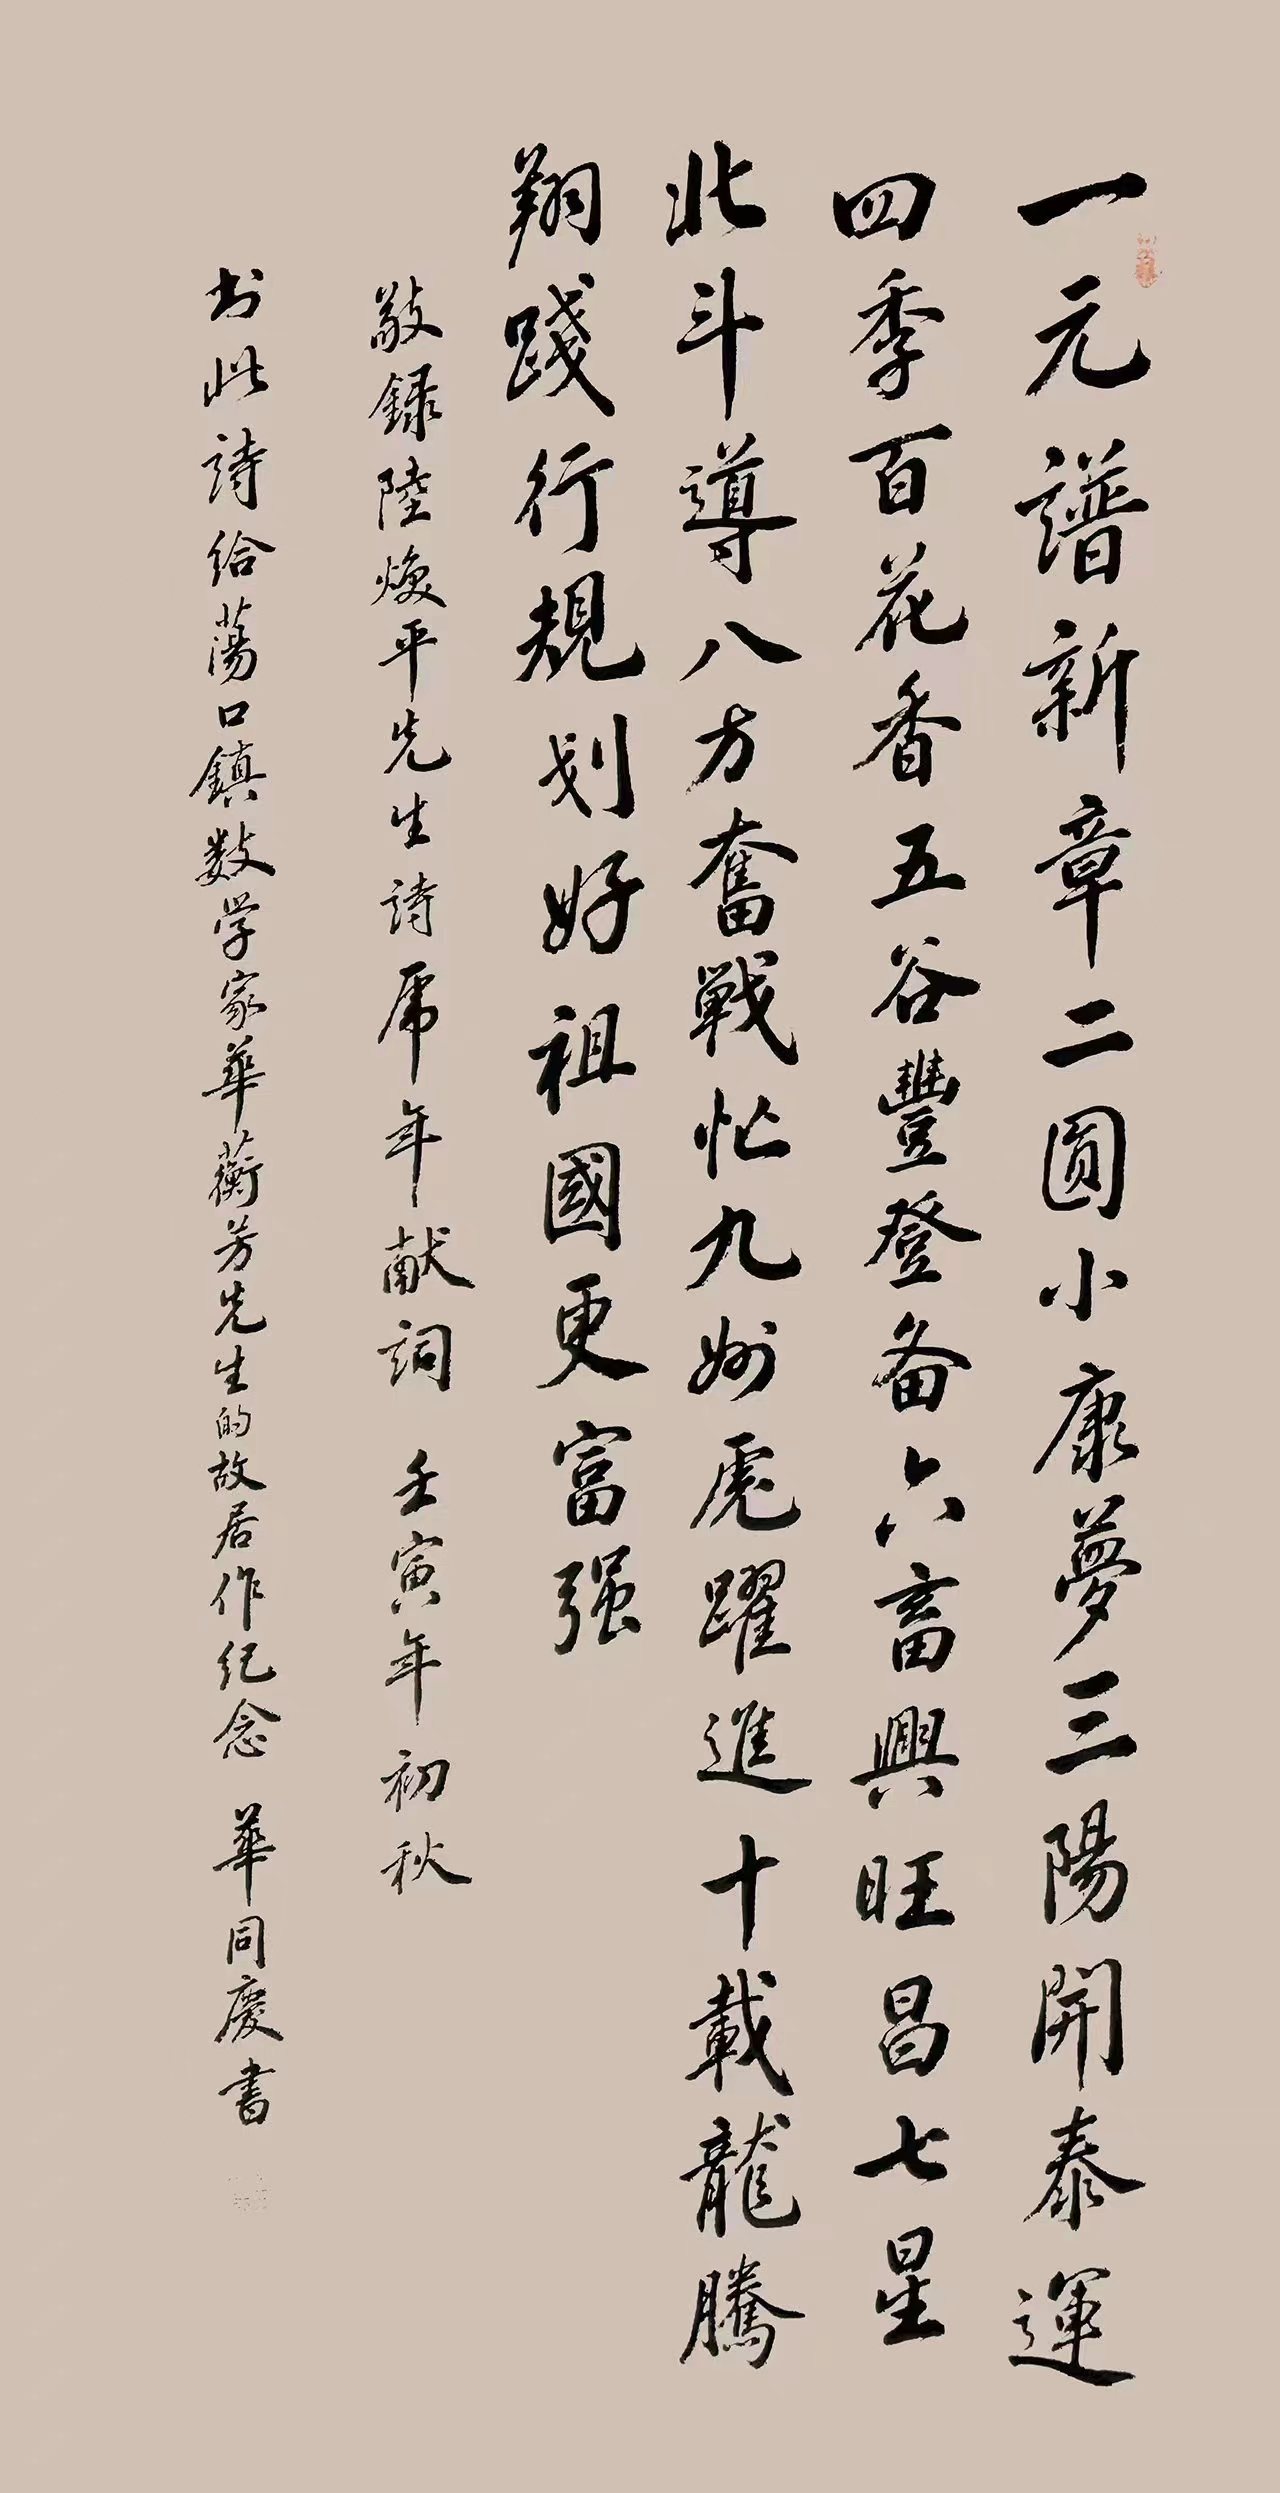 一元譜新章二圓小康夢三陽開泰運
四季百花香五谷豐登备六畜興旺昌七星
北斗導八方奮戰忙九州虎躍進十載龍騰
翔踐行規划好祖國更富强
敬録陸焕平先生詩虎年献詞 壬寅年初秋
书此詩给蕩口鎮数学家華蘅芳先生的故居作纪念 華同慶書